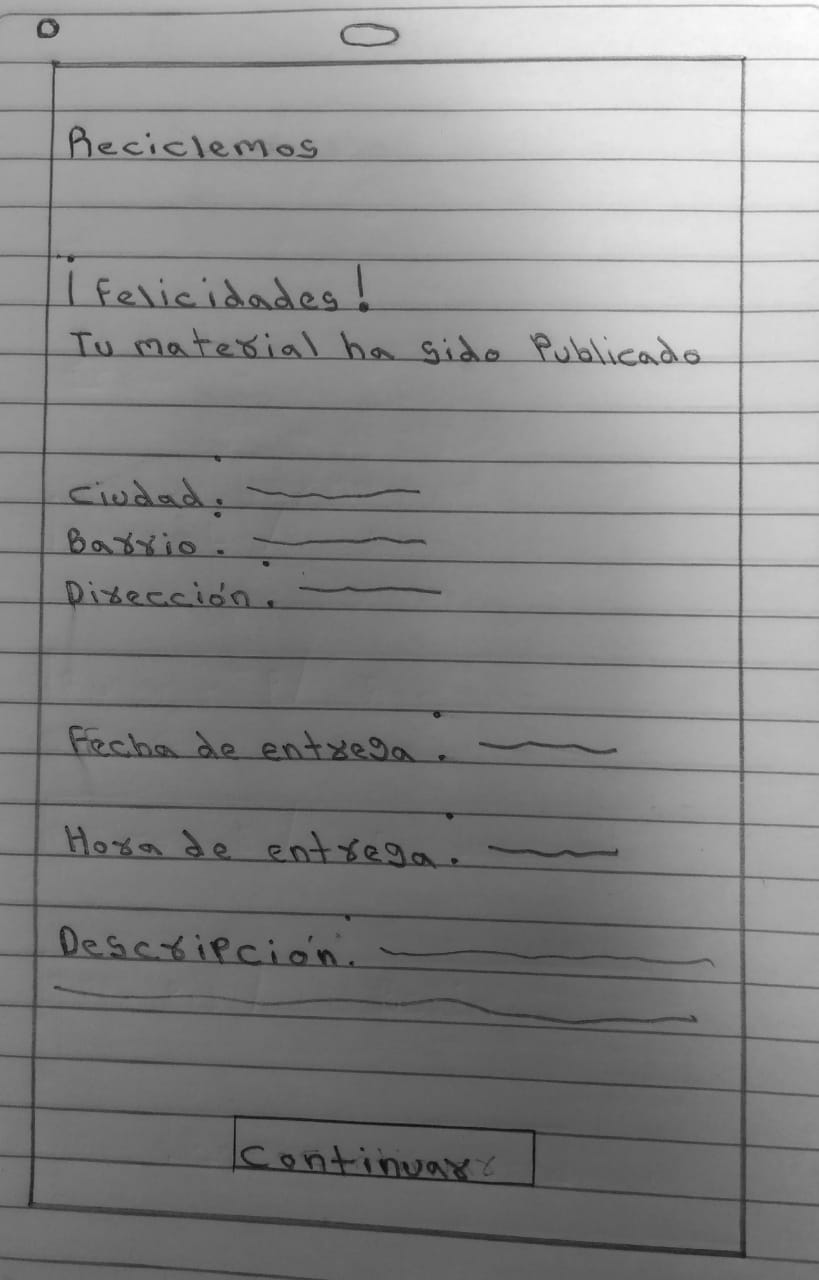 Reciclemos
¡Felicidades!
Tu material ha sido Publicado
Ciudad:
Barrio:
Dirección:
Fecha de entrega:
Hora de entrega:
Descripción:
Continuar